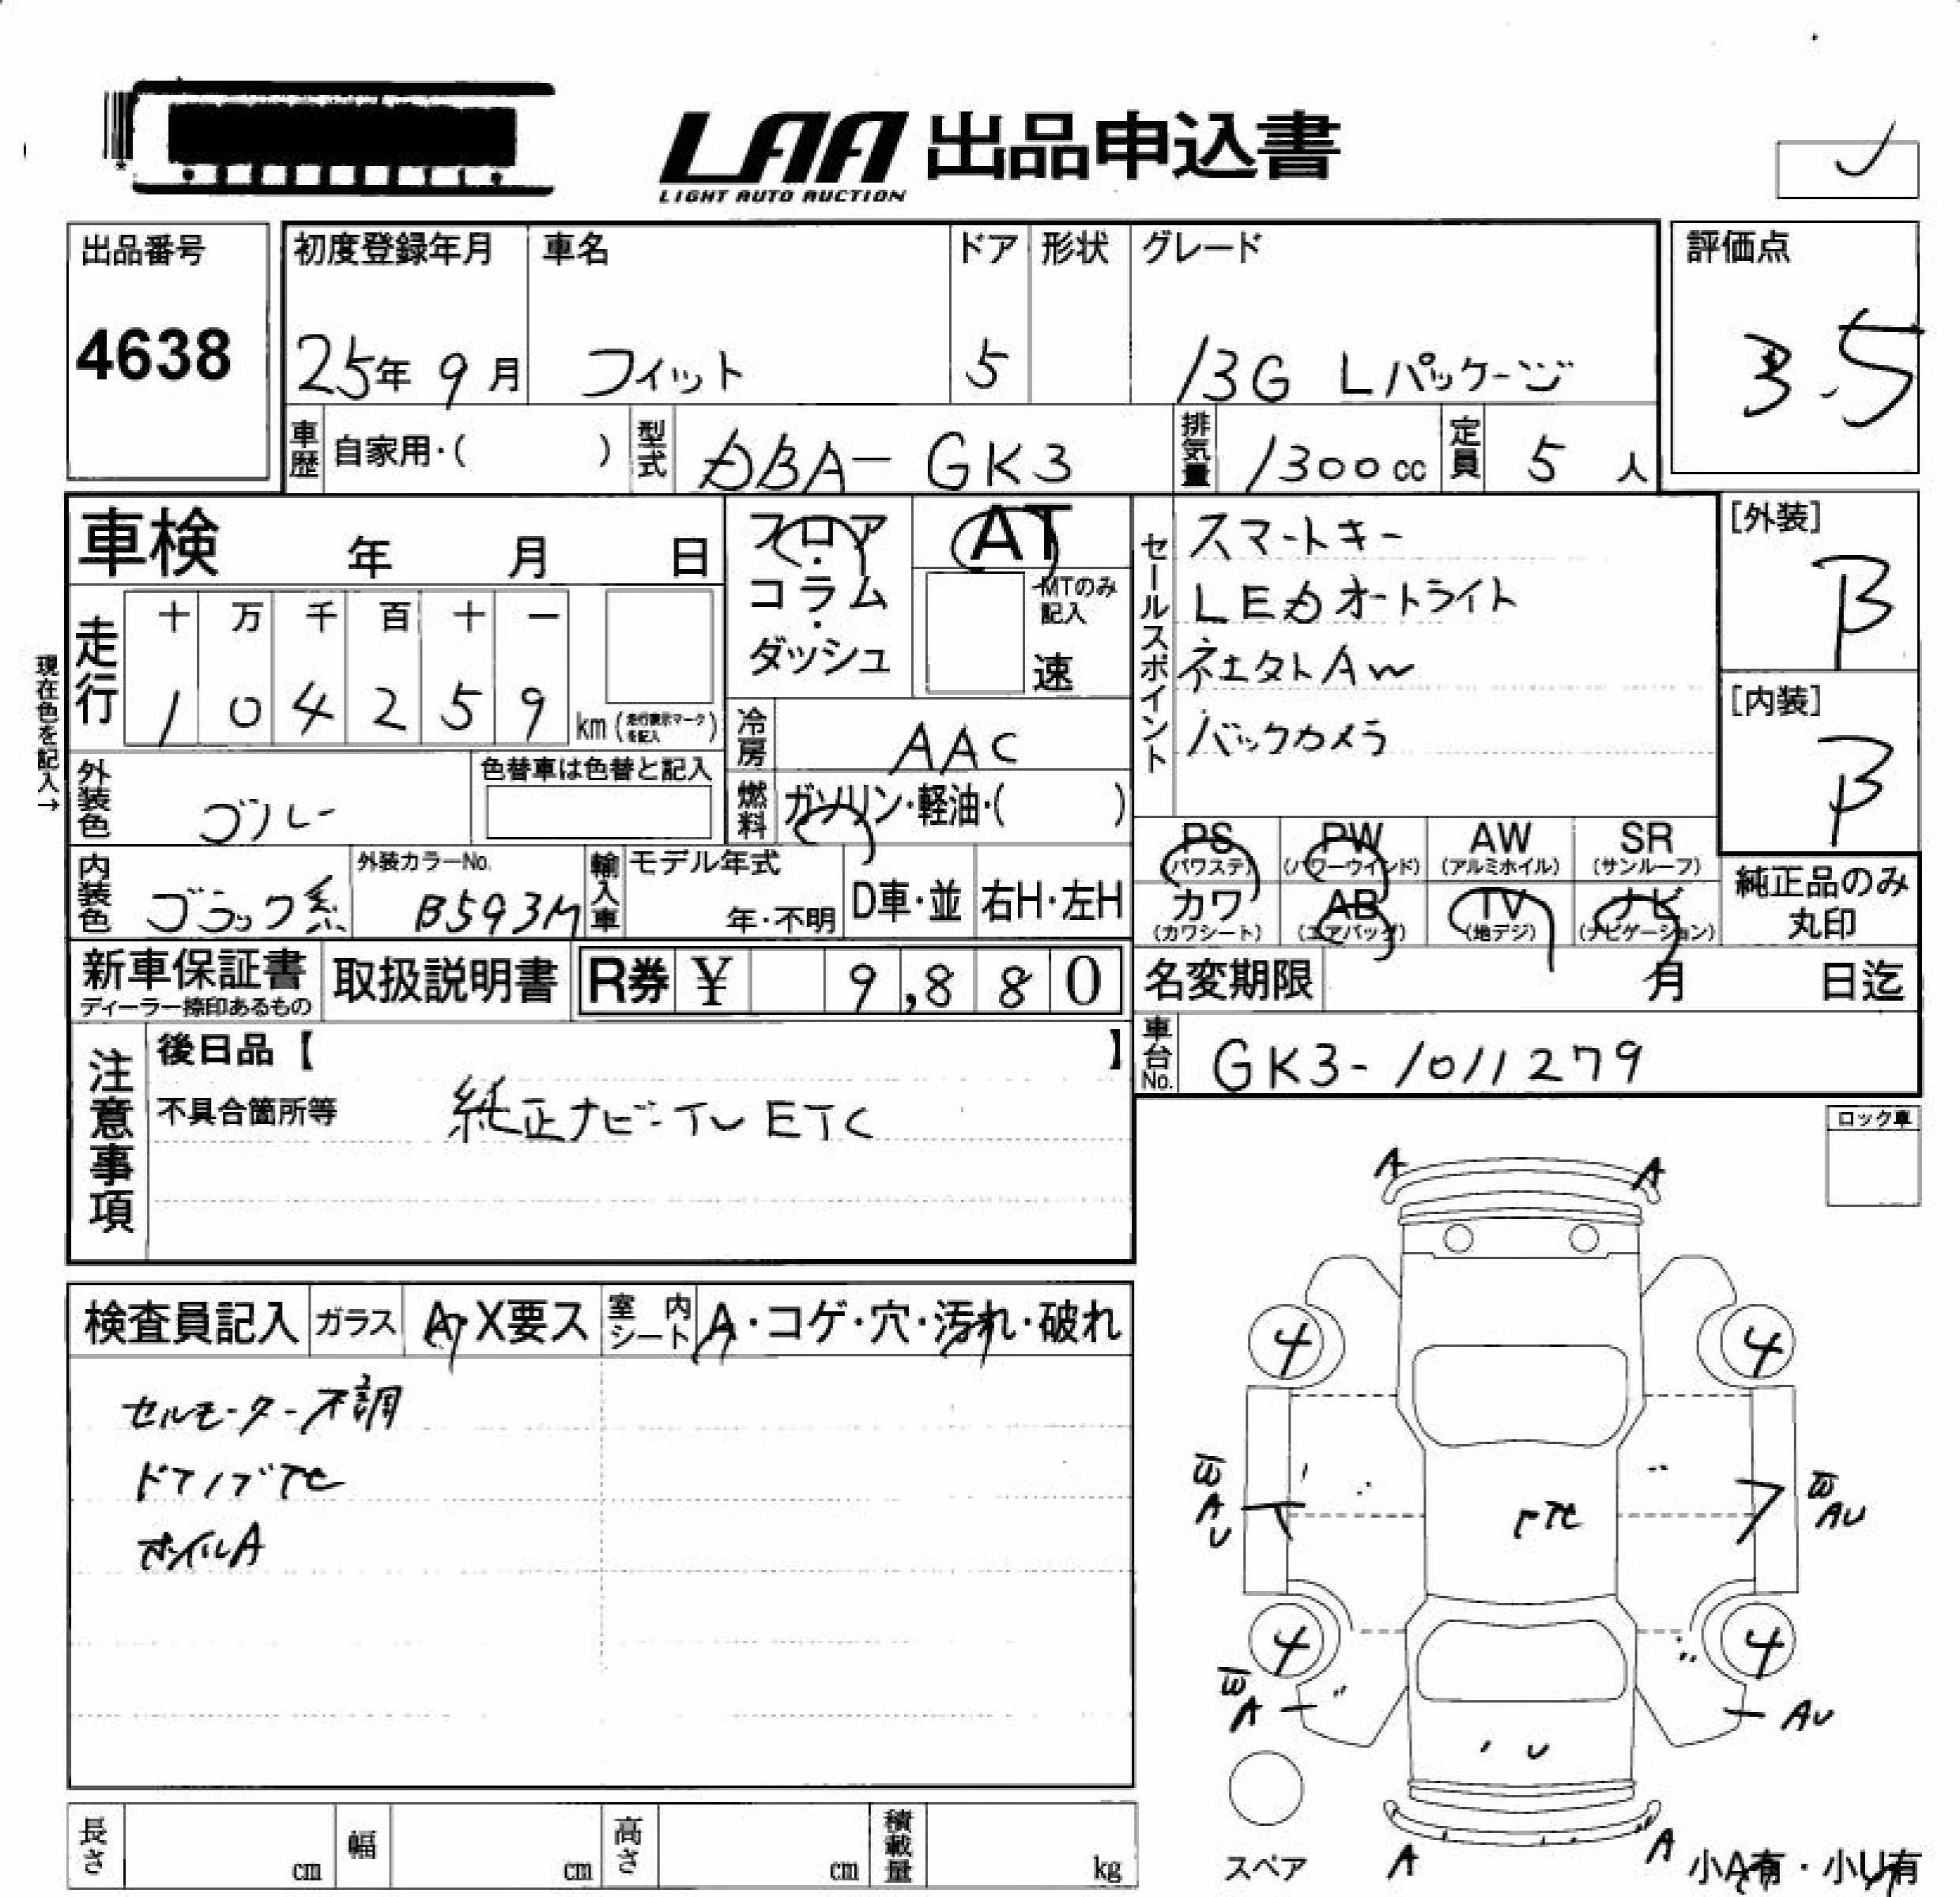 LAA 出品申込書
LIGHT AUTO AUCTION
出品番号
4638
初度登録年月
25年 9月
車名
フィット
ドア
5
形状
グレード
13G Lパッケージ
評価点
3.5
車歴
自家用・( )
型式
DBA- GK3
排気量
1300cc
定員
5 人
車検 年 月 日
現在色を記入→
走行
十 万 千 百 十 一
1 0 4 2 5 9 km (走行表示マークを記入)
フロア・コラム・ダッシュ
AT
MTのみ記入
速
冷房
AAC
燃料
ガソリン・軽油・( )
セールスポイント
スマートキー
LEDオートライト
AW
バックカメラ
[外装]
B
[内装]
B
外装色
ブルー
色替車は色替と記入
内装色
ブラック系
外装カラーNo.
B593M
輸入車
モデル年式
年・不明
D車・並
右H・左H
PS (パワステ)
PW (パワーウインド)
AW (アルミホイル)
SR (サンルーフ)
カワ (カワシート)
AB (エアバッグ)
TV (地デジ)
ナビ (ナビゲーション)
純正品のみ丸印
新車保証書
ディーラー捺印あるもの
取扱説明書
R券 ¥ 9,880
名変期限 月 日迄
車台No.
GK3-1011279
注意事項
後日品【 】
不具合箇所等
純正ナビ・TV ETC
ロック車
検査員記入
ガラス A・X要ス
室内シート A・コゲ・穴・汚れ・破れ
セルモーター不調
ドアノブ
ホイルA
A A
4 4
W AU
W AU
4 4
W A
AU
U
A A
スペア
小A有・小U有
長さ cm
幅 cm
高さ cm
積載量 kg